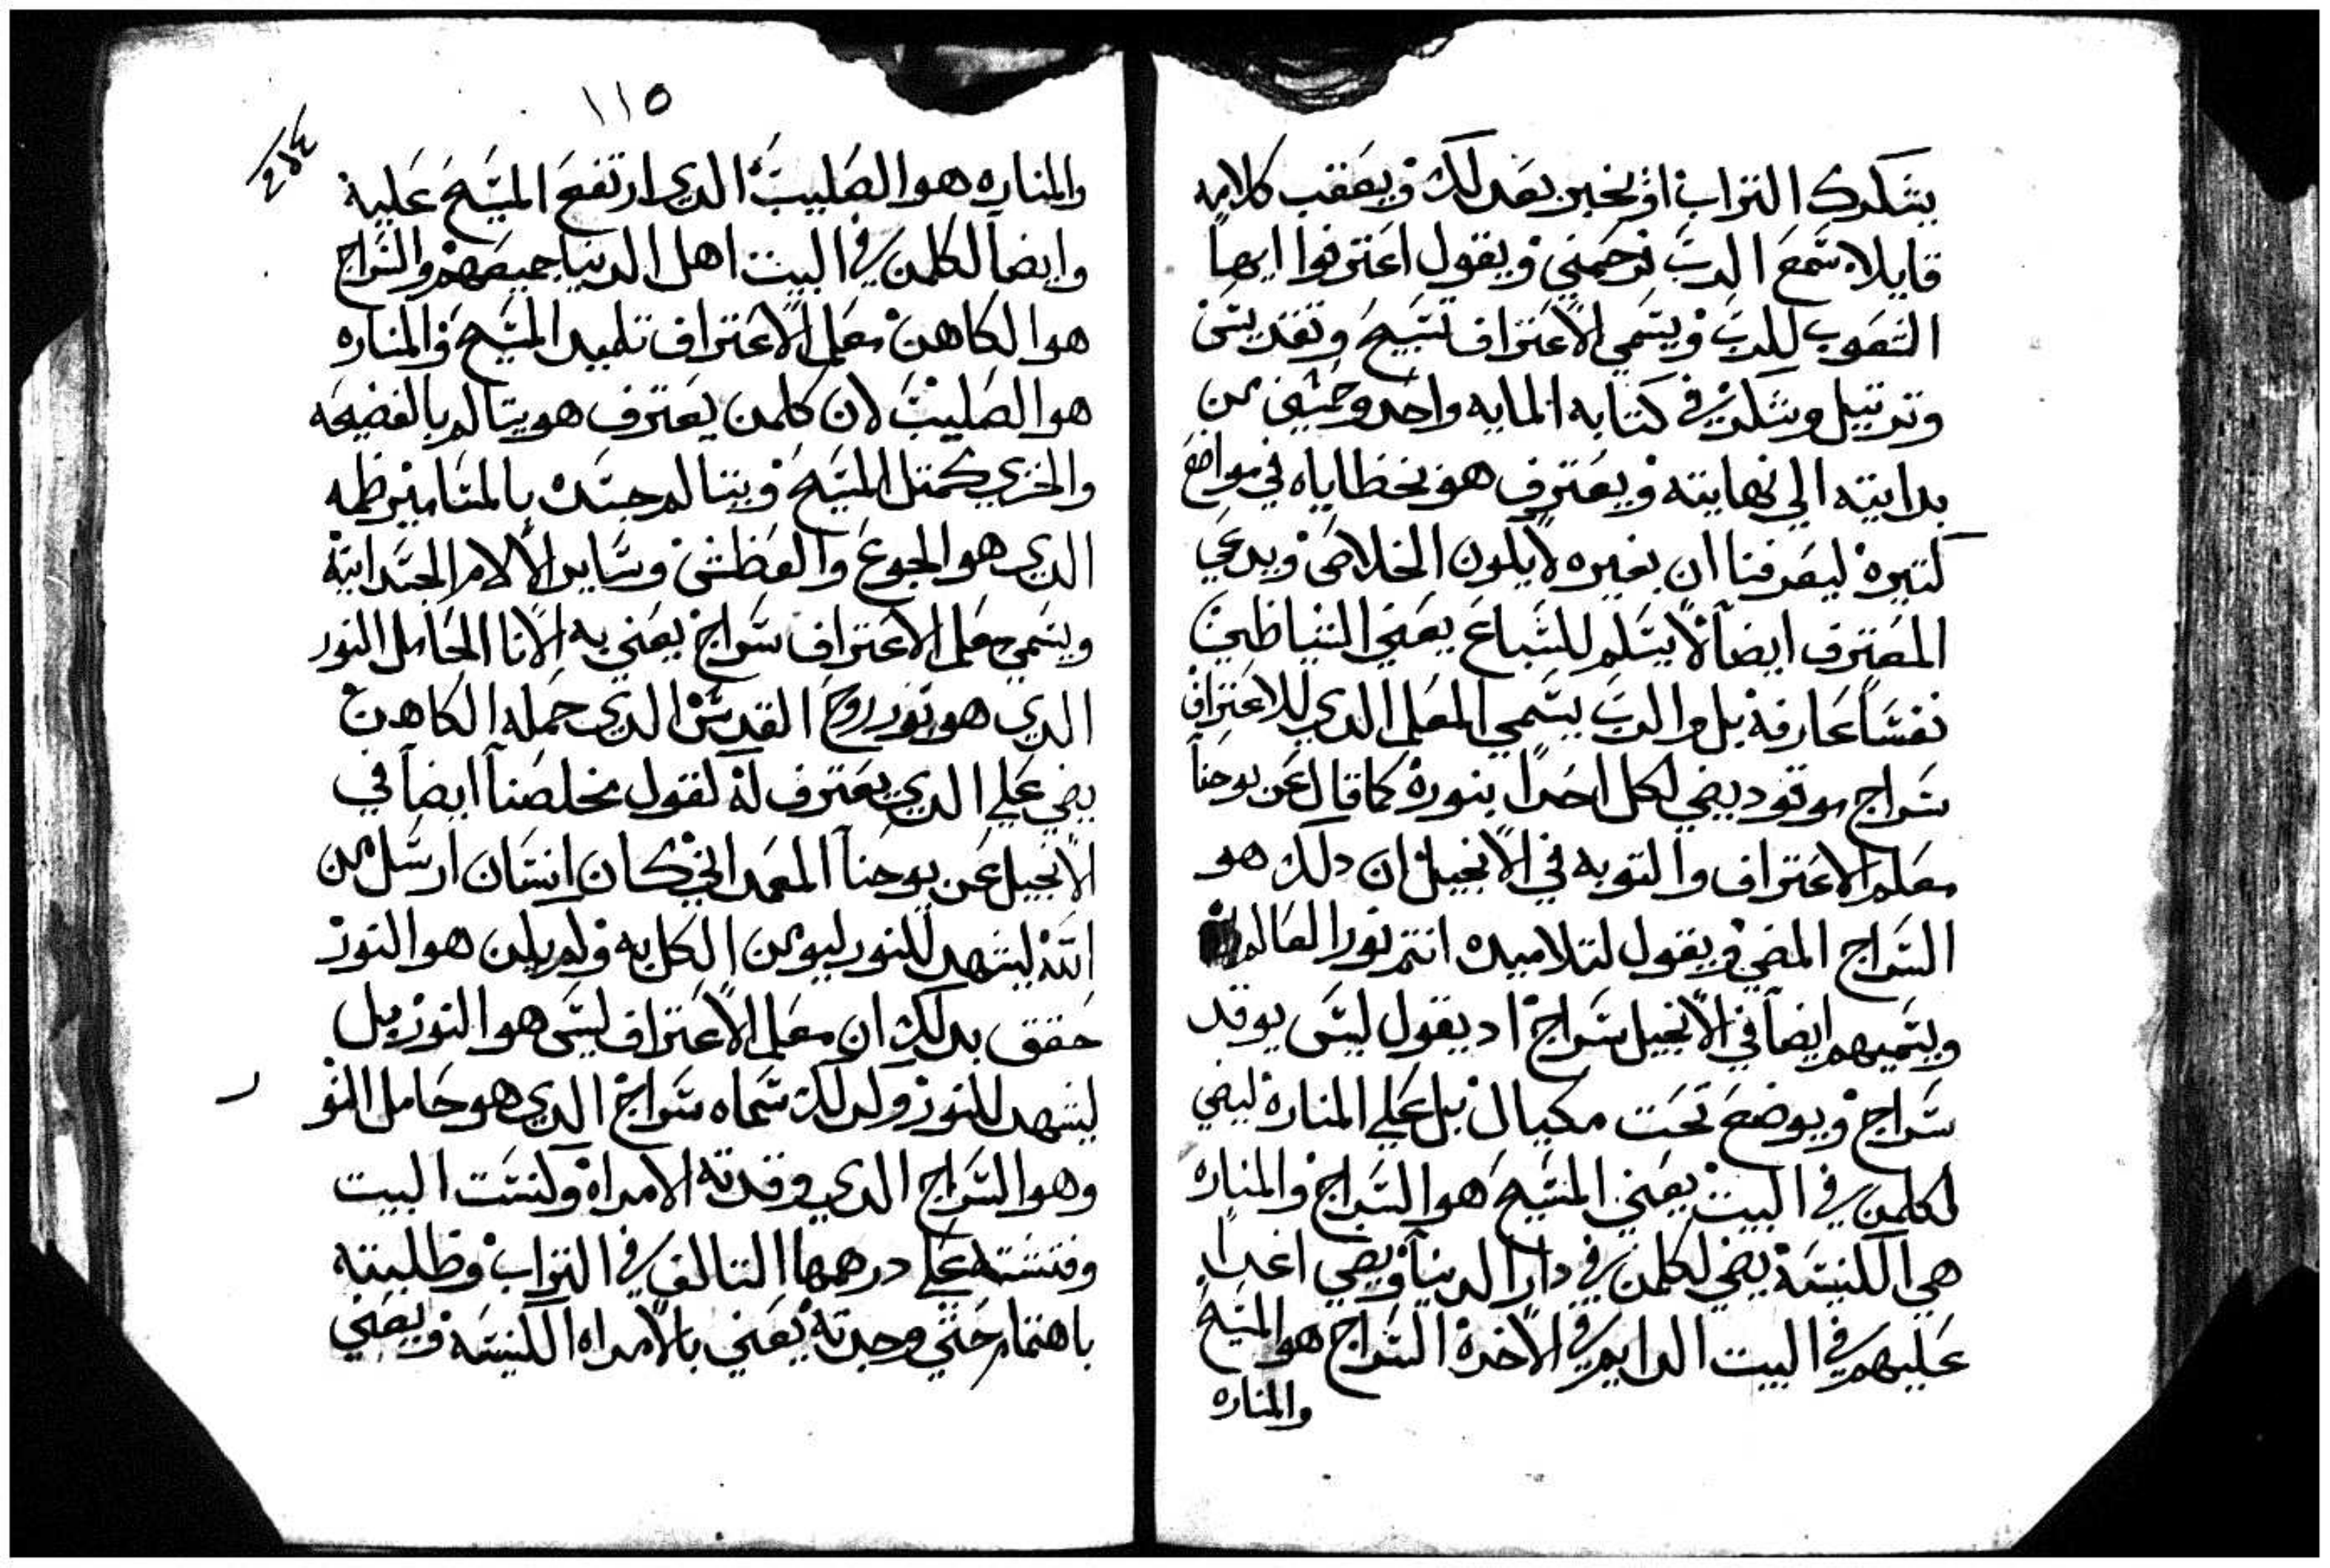 يشكرك التراب او يخبر بعدلك ويعقب كلامه
قايلا سمع الرب ترحمني ويقول اعترفوا ايها
الشعوب للرب ويسمي الاعتراف تسبيح وتقديس
وترتيل وشكر في كتابه المايه واحد وخمسين من
بدايته الي نهايته ويعترف هو بخطاياه في مواضع
كتيره ليعرفنا ان بغيره لا يكون الخلاص ويدعي
المعترف ايضاً لا يسلم للسباع يعني الشياطين
نفساً عارفه بل والرب يسمي المعلم الدي للاعتراف
سراج موقود يضي لكل احداً بنوره كما قال عن يوحنا
معلم الاعتراف والتوبه في الانجيل ان دلك هو
السراج المضي ويقول لتلاميده انتم نور العالم
ويسميهم ايضاً في الانجيل سراج اد يقول ليس يوقد
سراج ويوضع تحت مكيال بل علي المناره ليضي
لكلمن في البيت يعني المسيح هو السراج والمناره
هي الكنيسة يضي لكلمن في دار الدنيا ويضي اغداً
عليهم في البيت الدايم في الاخرة السراج هو المسيح
والمناره
١١٥
والمناره هو الصليب الدي ارتفع المسيح عليه
وايضاً لكلمن في البيت اهل الدنيا جميعهم والسراج
هو الكاهن معلم الاعتراف تلميد المسيح والمناره
هو الصليب لان كلمن يعترف هو يتالم بالفضيحه
والخزي كمتل المسيح ويتالم جسده بالمسامير
الدي هو الجوع والعطش وساير الالام الجسدانية
ويسمي معلم الاعتراف سراج يعني به الانا الحامل النور
الدي هو نور روح القدس الدي حمله الكاهن
يضي علي الدي يعترف له لقول مخلصنا ايضاً في
الانجيل عن يوحنا المعمداني كان انسان ارسل من
الله ليشهد للنور ليومن الكل به ولم يكن هو النور
حقق بدلك ان معلم الاعتراف ليس هو النور بل
ليشهد للنور ولدلك سماه سراج الدي هو حامل النو
ر
وهو السراج الدي وقدته الامراه وكنست البيت
وفتشته علي درهمها التالف في التراب وطلبته
باهتمام حتي وجدته يعني بالامراه الكنيسه ويعني